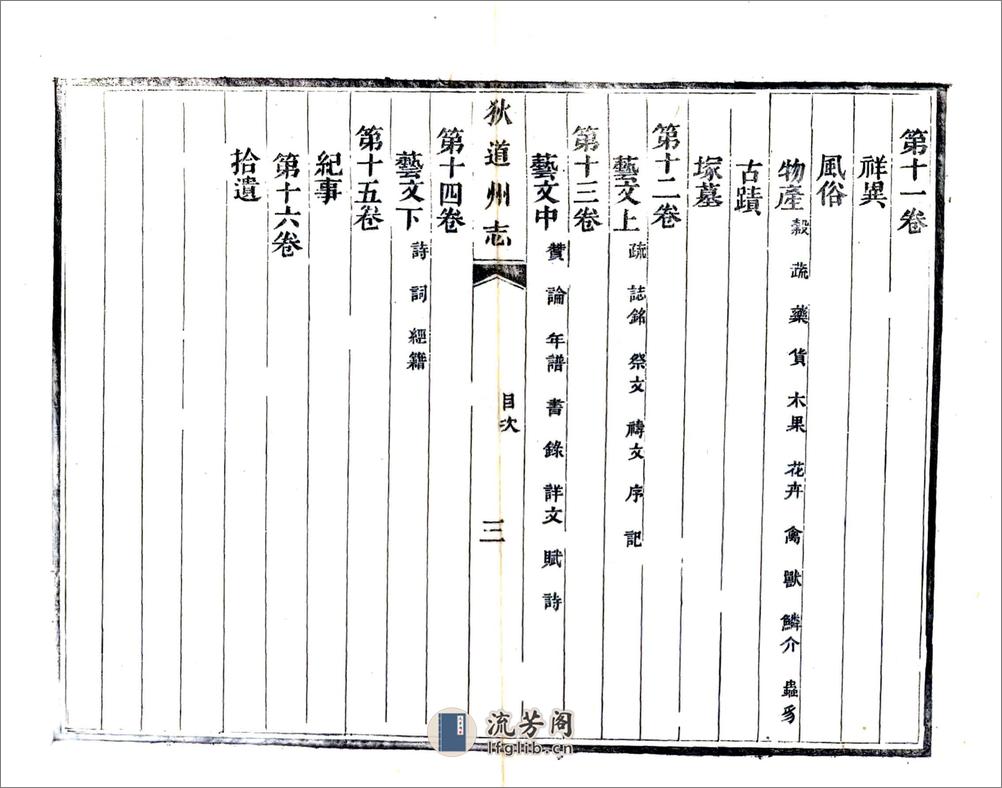 第十一卷
祥異
風俗
物產 穀 蔬 藥 貨 木果 花卉 禽 獸 鱗介 蟲豸
古蹟
塚墓
第十二卷
藝文上 疏 誌銘 祭文 禱文 序 記
第十三卷
藝文中 贊 論 年譜 書 錄 詳文 賦 詩
狄道州志 目次 三
第十四卷
藝文下 詩 詞 經籍
第十五卷
紀事
第十六卷
拾遺
流芳阁
lfglib.cn